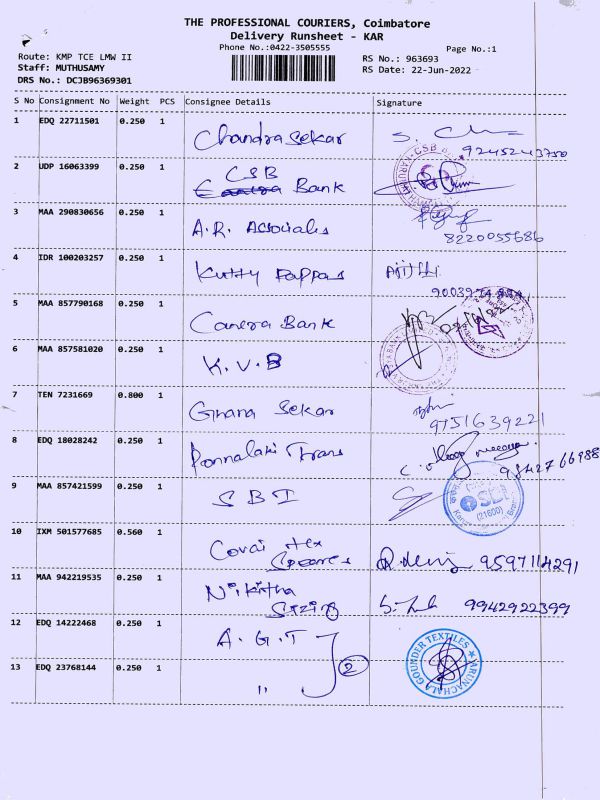 THE PROFESSIONAL COURIERS, Coimbatore
Delivery Runsheet - KAR
Phone No.:0422-3505555
Page No.:1
Route: KMP TCE LMW II
RS No.: 963693
Staff: MUTHUSAMY
RS Date: 22-Jun-2022
DRS No.: DCJB96369301
S No Consignment No Weight PCS Consignee Details Signature
1 EDQ 22711501 0.250 1 Chandra Sekar
9245243750
2 UDP 16063399 0.250 1 CSB
Bank
3 MAA 290830656 0.250 1 A.R. Associates
8220055686
4 IDR 100203257 0.250 1 Kutty Pappas
5 MAA 857790168 0.250 1 Canera Bank
6 MAA 857581020 0.250 1 K.V.B
7 TEN 7231669 0.800 1 Ghana Sekar
9751639221
8 EDQ 18028242 0.250 1 Trans
9842766988
9 MAA 857421599 0.250 1 SBI
SBI
(21600)
10 IXM 501577685 0.560 1 Covai Hex
9597114291
11 MAA 942219535 0.250 1 Nikitha
Sizing 9942922399
12 EDQ 14222468 0.250 1 A.G.T
2
ARUNACHALA GOUNDER TEXTILES
13 EDQ 23768144 0.250 1 "